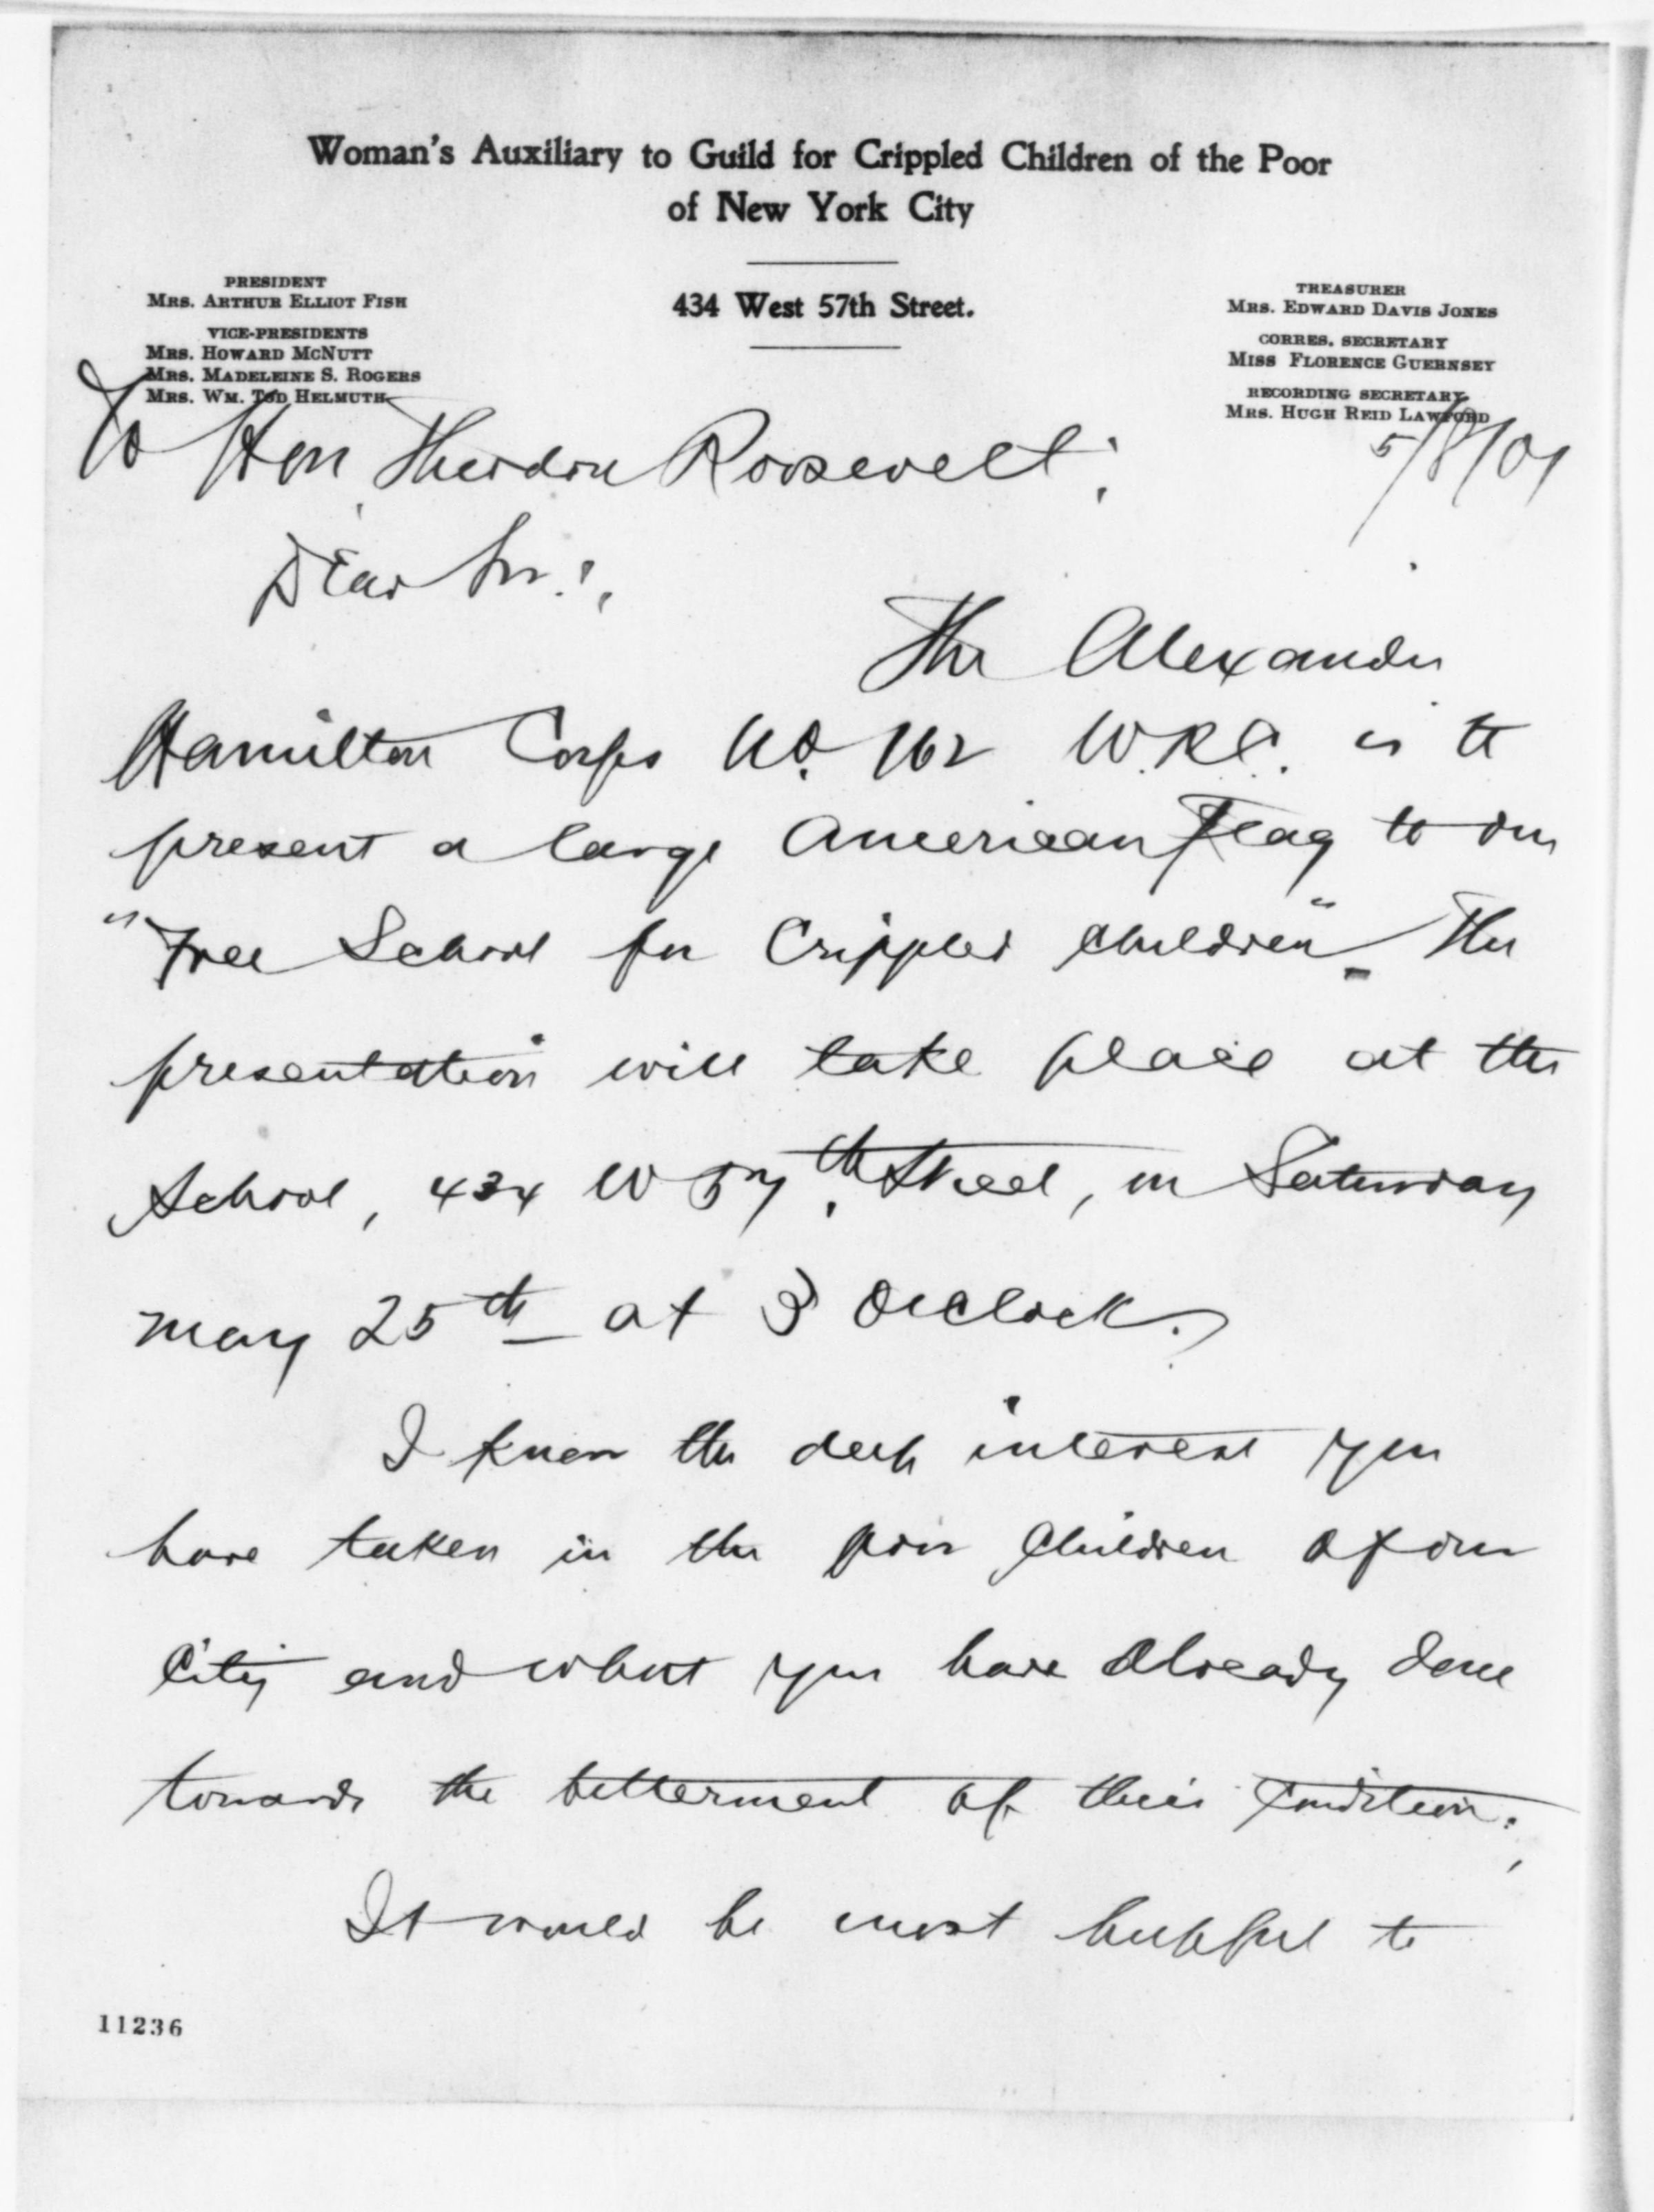 Woman's Auxiliary to Guild for Crippled Children of the Poor
of New York City
434 West 57th Street.
PRESIDENT
MRS. ARTHUR ELLIOT FISH
VICE-PRESIDENTS
MRS. HOWARD MCNUTT
MRS. MADELEINE S. ROGERS
MRS. WM. TOD HELMUTH
TREASURER
MRS. EDWARD DAVIS JONES
CORRES. SECRETARY
MISS FLORENCE GUERNSEY
RECORDING SECRETARY
MRS. HUGH REID LAWFORD
5/8/01
To Hon Theodore Roosevelt;
Dear Sir:,
The Alexander
Hamilton Corps No. 162 W.R.C. is to
present a large American Flag to our
"Free School for Crippled Children". The
presentation will take place at the
School, 434 W 57th Street, on Saturday
May 25th at 3 O'Clock.
I know the deep interest you
have taken in the poor children of our
City and what you have already done
towards the betterment of their condition.
It would be most helpful to
11236